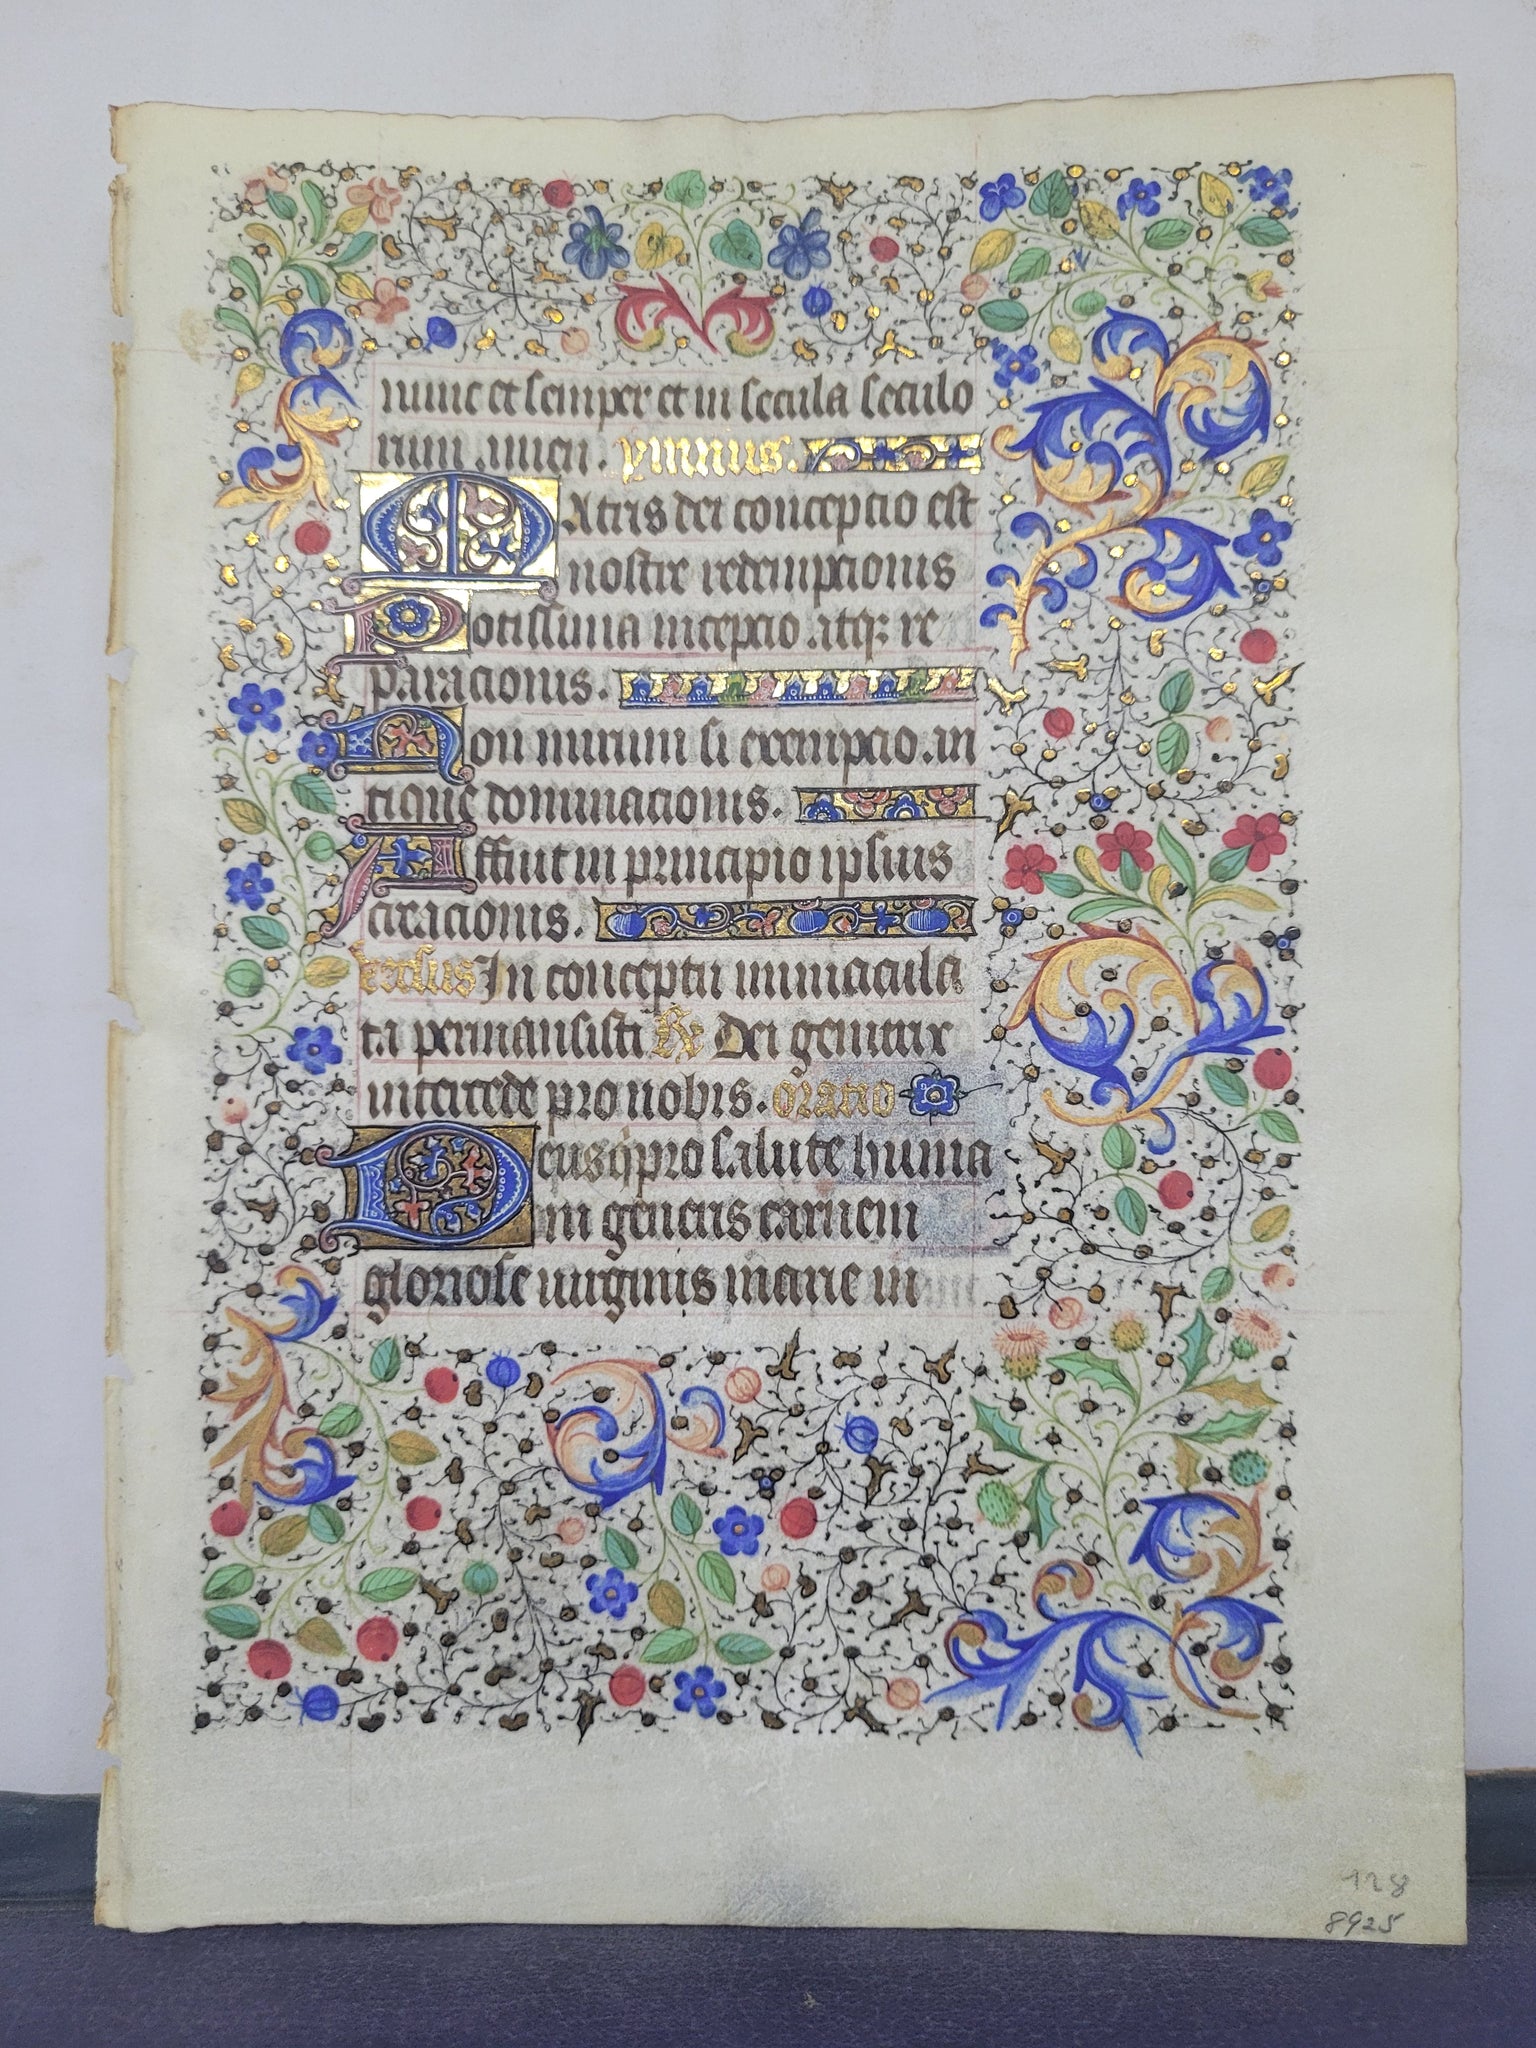 nunc et semper et in secula seculo
rum amen. ymnus.
Matris dei concepcio est
nostre redempcionis
Potissima incepcio atq; re
paracionis.
Non mirum si exempcio. an
tique dominacionis.
Affuit in principio ipsius
creacionis.
versus In conceptu immacula
ta permansisti ℟ Dei genitrix
intercede pro nobis. oratio
Deus q̇ pro salute huma
ni generis carnem
gloriose uirginis marie in
128
8925